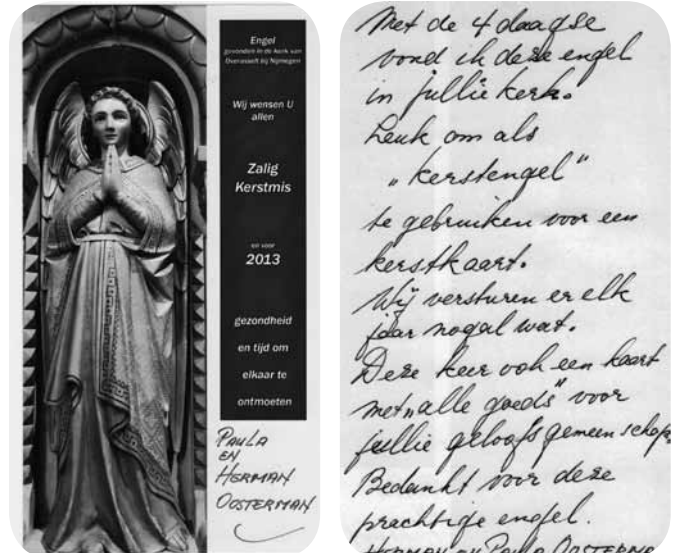 Engel
gevonden in de kerk van
Overasselt bij Nijmegen
Wij wensen U
allen
Zalig
Kerstmis
en voor
2013
gezondheid
en tijd om
elkaar te
ontmoeten
PAULA
EN
HERMAN
OOSTERMAN
Met de 4 daagse
vond ik deze engel
in jullie kerk.
Leuk om als
„kerstengel"
te gebruiken voor een
kerstkaart.
Wij versturen er elk
jaar nogal wat.
Deze keer ook een kaart
met „alle goeds" voor
jullie geloofsgemeenschap.
Bedankt voor deze
prachtige engel.
HERMAN en PAULA OOSTERMA